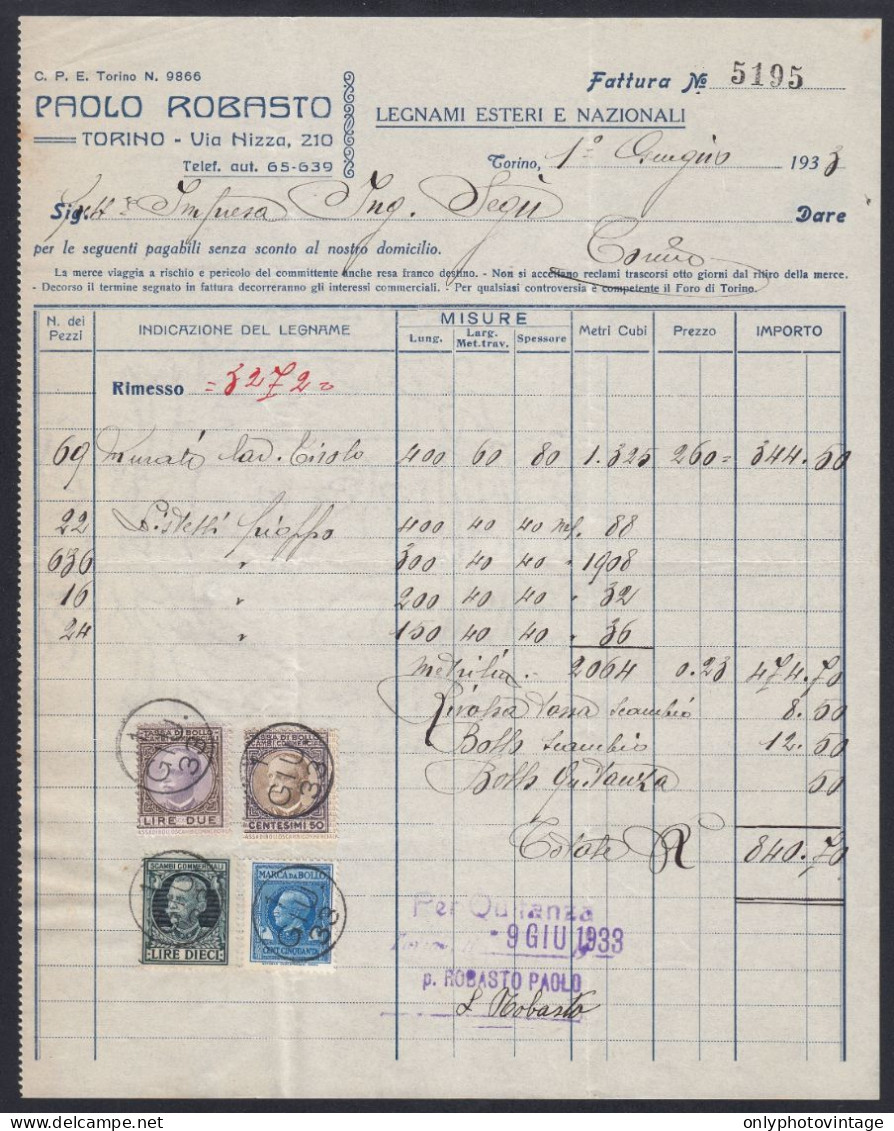 C. P. E. Torino N. 9866
PAOLO ROBASTO
TORINO - Via Nizza, 210
Telef. aut. 65-639
Fattura No 5195
LEGNAMI ESTERI E NAZIONALI
Torino, 1° Giugno 1933
Sig. Impresa Ing. Segù Dare
Torino
per le seguenti pagabili senza sconto al nostro domicilio.
La merce viaggia a rischio e pericolo del committente anche resa franco destino. - Non si accettano reclami trascorsi otto giorni dal ritiro della merce.
- Decorso il termine segnato in fattura decorreranno gli interessi commerciali. - Per qualsiasi controversia è competente il Foro di Torino.
N. dei Pezzi INDICAZIONE DEL LEGNAME MISURE Lung. Larg. Met. trav. Spessore Metri Cubi Prezzo IMPORTO
Rimesso =3272=
69 Murati Tirolo 400 60 80 1.325 260= 344.50
22 Listelli pioppo 400 40 40 Ml. 88
636 " 300 40 40 " 1908
16 " 200 40 40 " 32
24 " 150 40 40 " 36
2064 0.23 474.70
Rivalsa tassa scambio 8.50
Bollo scambio 12.50
Bollo Quitanza 50
Totale 840.70
TASSA DI BOLLO
SCAMBI COMMERCIALI
LIRE DUE
TASSA DI BOLLO
SCAMBI COMMERCIALI
CENTESIMI 50
1 GIU. 33
1 GIU 33
SCAMBI COMMERCIALI
LIRE DIECI
MARCA DA BOLLO
CENT. CINQUANTA
GIU 33
Per Quitanza
- 9 GIU 1933
p. ROBASTO PAOLO
Robasto
www.delcampe.net
onlyphotovintage